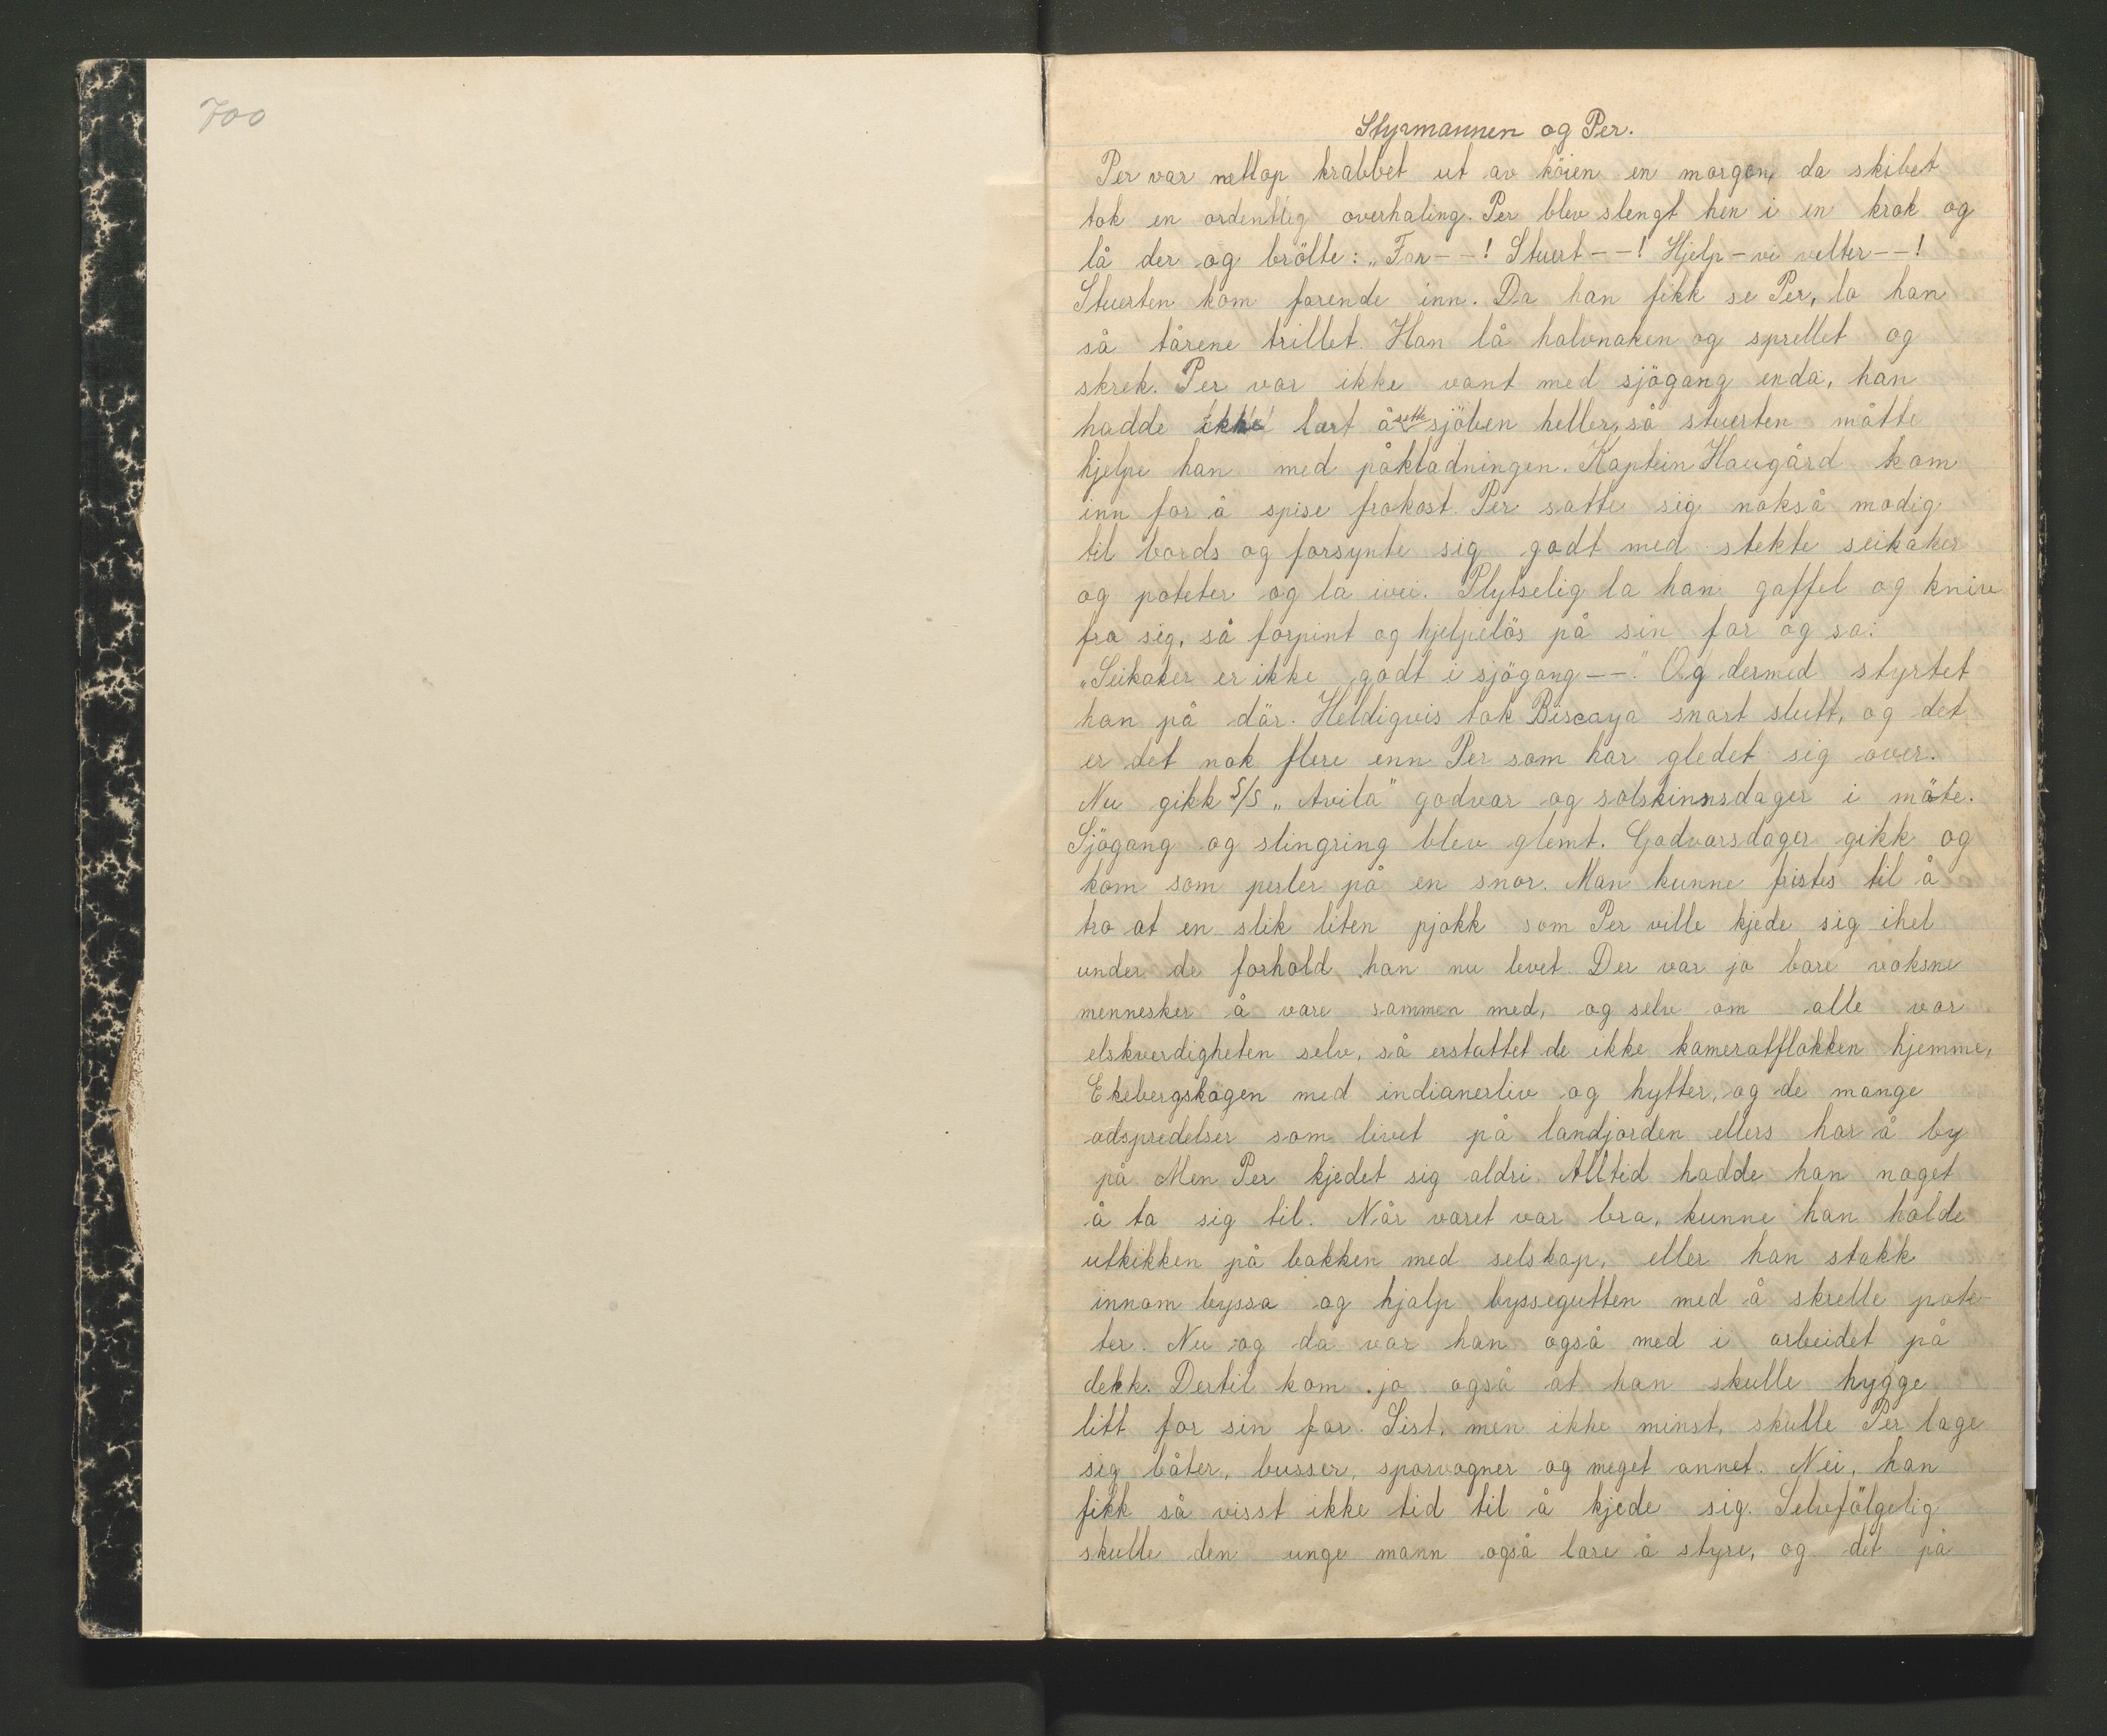 700
Styrmannen og Per.
Per var nettop krabbet ut av köien en morgen, da skibet
tok en ordentlig overhaling. Per blev slengt hen i en krok og
lå der og brölte: „Far--! Stuert--! Hjelp-vi velter--!
Stuerten kom farende inn. Da han fikk se Per, lo han
så tårene trillet. Han lå halvnaken og sprellet og
skrek. Per var ikke vant med sjögang enda, han
hadde ikke lært å sette sjöben heller, så stuerten måtte
hjelpe han med påkladningen. Kaptein Haugård kom
inn for å spise frokost. Per satte sig nokså modig
til bords og forsynte sig godt med stekte seikaker
og poteter og la ivei. Plytselig la han gaffel og kniv
fra sig, så forpint og hjelpelös på sin far og sa:
„Seikaker er ikke godt i sjögang--." Og dermed styrtet
han på dör. Heldigvis tok Biscaya snart slutt, og det
er det nok flere enn Per som har gledet sig over.
Nu gikk S/S „Avila" godvar og solskinnsdager i möte.
Sjögang og slingring blev glemt. Godvarsdager gikk og
kom som perler på en snor. Man kunne fristes til å
tro at en slik liten pjokk som Per ville kjede sig ihel
under de forhold han nu levet. Der var jo bare voksne
mennesker å vare sammen med, og selv om alle var
elskverdigheten selv, så erstattet de ikke kameratflokken hjemme,
Ekebergskogen med indianerliv og hytter, og de mange
adspredelser som livet på landjorden ellers har å by
på. Men Per kjedet sig aldri. Alltid hadde han noget
å ta sig til. Når varet var bra, kunne han holde
utkikken på bakken med selskap, eller han stakk
innom byssa og hjalp byssegutten med å skrelle pote-
ter. Nu og da var han også med i arbeidet på
dekk. Dertil kom jo også at han skulle hygge
litt for sin far. Sist, men ikke minst, skulle Per lage
sig båter, busser, sporvogner og meget annet. Nei, han
fikk så visst ikke tid til å kjede sig. Selvfölgelig
skulle den unge mann også lare å styre, og det på